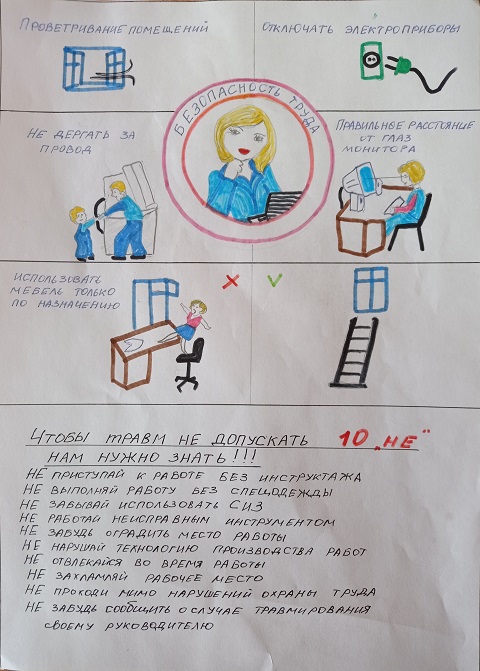 ПРОВЕТРИВАНИЕ ПОМЕЩЕНИЙ
ОТКЛЮЧАТЬ ЭЛЕКТРОПРИБОРЫ
БЕЗОПАСНОСТЬ ТРУДА
НЕ ДЕРГАТЬ ЗА
ПРОВОД
ПРАВИЛЬНОЕ РАССТОЯНИЕ
ОТ ГЛАЗ
МОНИТОРА
ИСПОЛЬЗОВАТЬ
МЕБЕЛЬ ТОЛЬКО
ПО НАЗНАЧЕНИЮ
ЧТОБЫ ТРАВМ НЕ ДОПУСКАТЬ 10 „НЕ“
НАМ НУЖНО ЗНАТЬ!!!
НЕ ПРИСТУПАЙ К РАБОТЕ БЕЗ ИНСТРУКТАЖА
НЕ ВЫПОЛНЯЙ РАБОТУ БЕЗ СПЕЦОДЕЖДЫ
НЕ ЗАБЫВАЙ ИСПОЛЬЗОВАТЬ СИЗ
НЕ РАБОТАЙ НЕИСПРАВНЫМ ИНСТРУМЕНТОМ
НЕ ЗАБУДЬ ОГРАДИТЬ МЕСТО РАБОТЫ
НЕ НАРУШАЙ ТЕХНОЛОГИЮ ПРОИЗВОДСТВА РАБОТ
НЕ ОТВЛЕКАЙСЯ ВО ВРЕМЯ РАБОТЫ
НЕ ЗАХЛАМЛЯЙ РАБОЧЕЕ МЕСТО
НЕ ПРОХОДИ МИМО НАРУШЕНИЙ ОХРАНЫ ТРУДА
НЕ ЗАБУДЬ СООБЩИТЬ О СЛУЧАЕ ТРАВМИРОВАНИЯ
СВОЕМУ РУКОВОДИТЕЛЮ